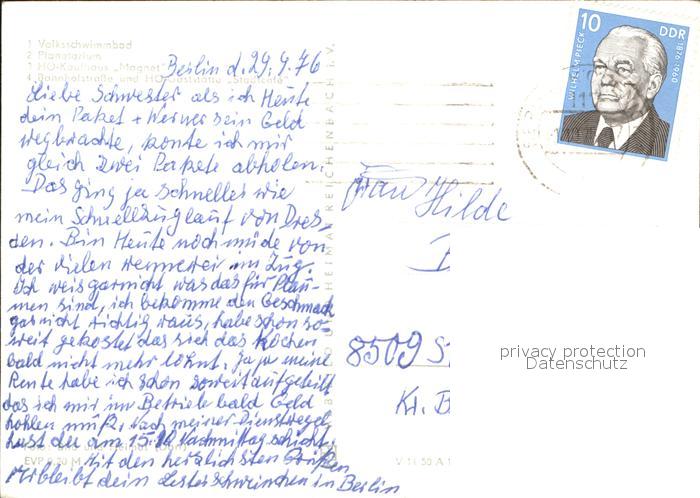 1 Volksschwimmbad
2 Planetarium
3 HO-Kaufhaus „Magnet“
4 Bahnhofstraße und HO-Gaststätte „Stadtcafé“
Berlin d. 29.9.76
Liebe Schwester als ich Heute
dein Paket + Werner sein Geld
wegbrachte, konte ich mir
gleich zwei Pakete abholen.
Das ging ja schneller wie
mein Schnellzuglauf von Dres-
den. Bin Heute noch müde von
der vielen im Zug.
Ich weis garnicht was das für Plau-
men sind, ich bekomme den Geschmack
garnicht richtig raus, habe schon so-
weit gekostet das sich das Kochen
bald nicht mehr lohnt. Ja ja meine
Rente habe ich schon soweit aufgefüllt
das ich mir im Betriebe bald Geld
hohlen muß, nach meiner Dienstregel
hast du am 15.10 Nachmittagschicht.
Mit den herzlichsten Grüßen
verbleibt dein in Berlin
EVP 0,20 M
V 11 50 A 1
REICHENBACH i. V.
Frau Hilde
8509 S
Kr. B
10
DDR
WILHELM PIECK
1876-1960
privacy protection
Datenschutz